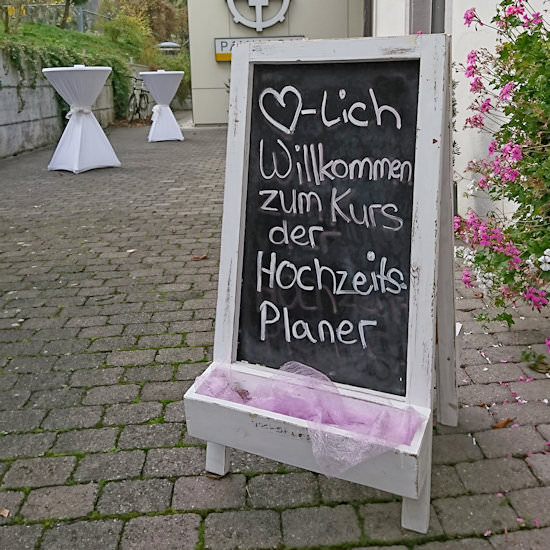 ♡-lich
Willkommen
zum Kurs
der
Hochzeits-
Planer